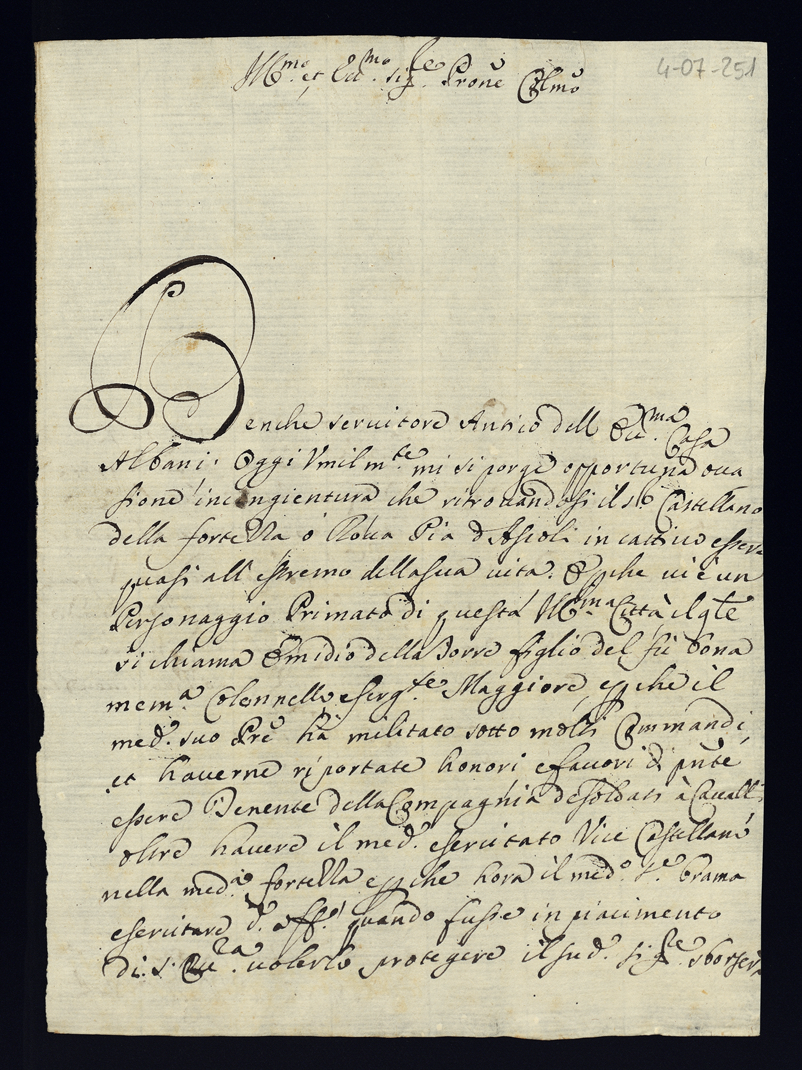 4-07-251
Ill.mo et Ecc.mo Sig.re Prone Colmo
Benche servitore Antico dell Ecc.ma Casa
Albani. Oggi Umilm.te mi si porge opportuna occa
sione in congientura che ritrovandosi il sig. Castellano
della fortezza ò Rocca Pia d'Ascoli in cattivo essere
quasi all'estremo della sua vita. E perche vi è un
Personaggio Primato di questa Ill.ma Città il qle
si chiama Emidio della Torre figlio del fù bona
mem.a Colonnello e serg.te Maggiore, e perche il
med.o suo Pre ha militato sotto molti Commandi,
et haverne riportate honori e favori di pnte
essere Tenente della Compaghia de soldati à Cavallo
oltre havere il med.o esercitato Vice Castellano
nella med.a fortezza e perche hora il med.o brama
esercitare d.o off.o quando fusse in piacimento
di S. Ecc.za volerlo protegere il sud.o sig.re sborserà